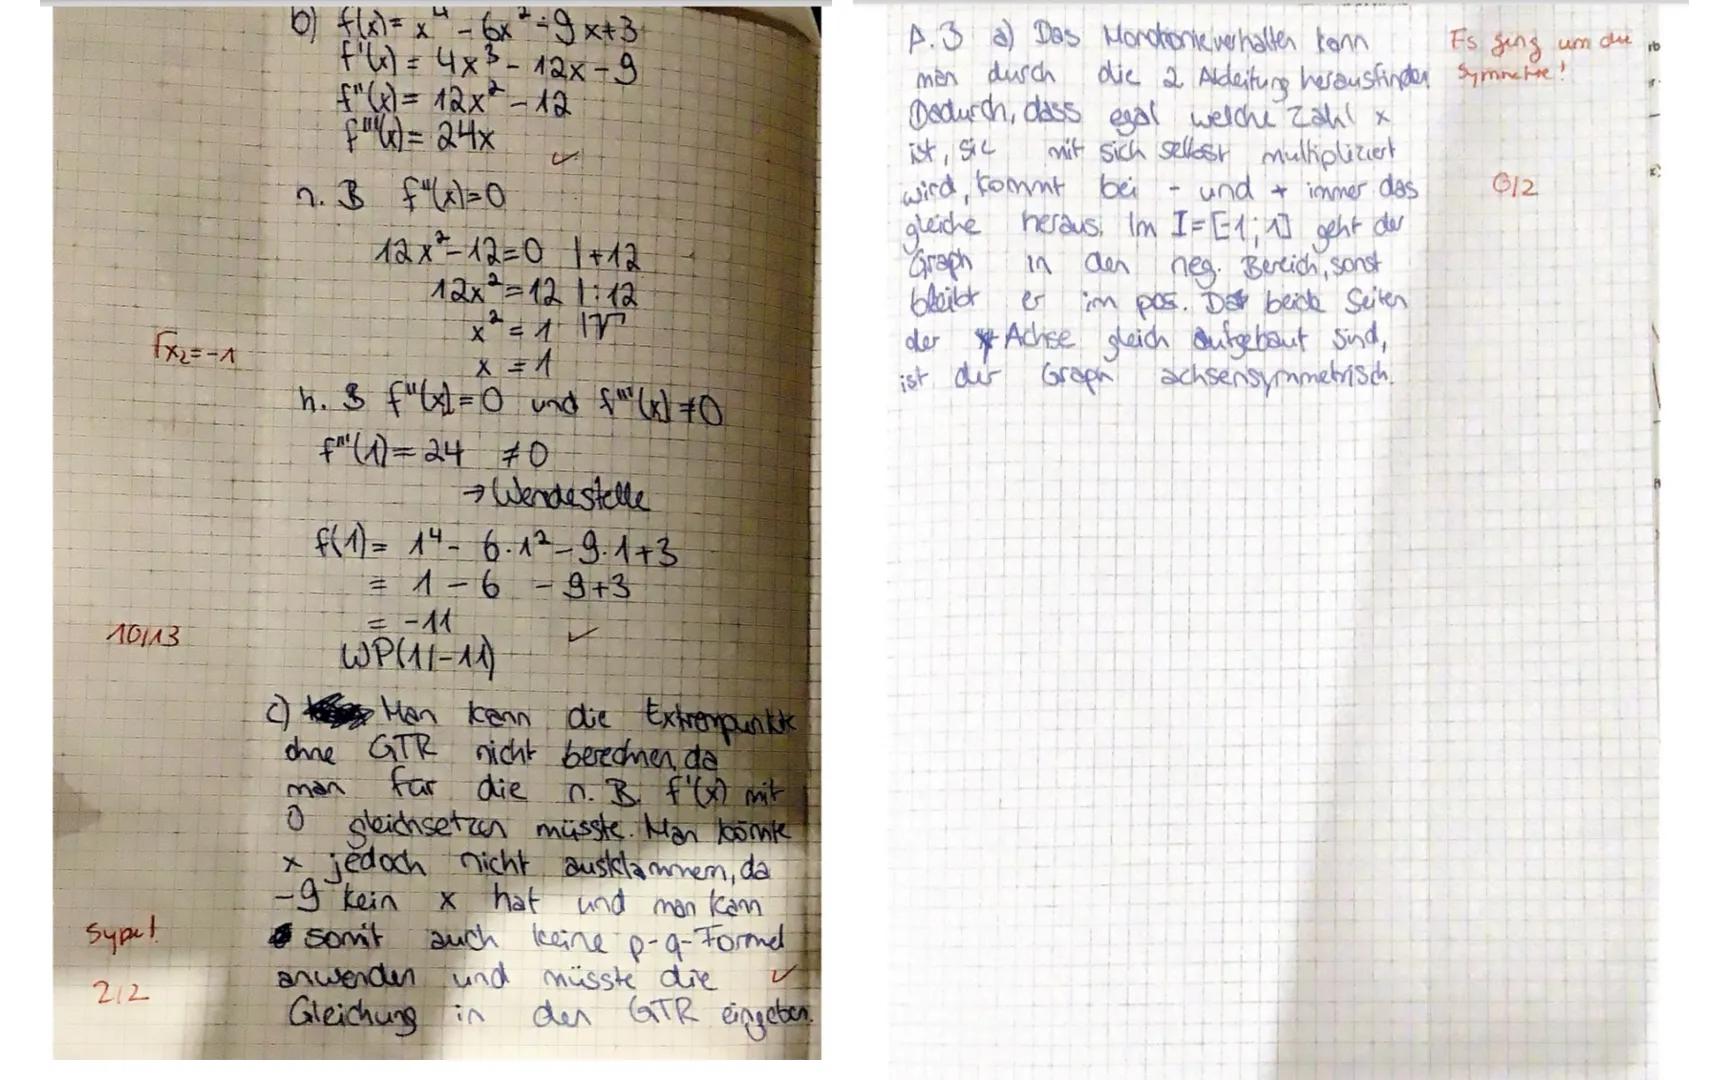 b) f(x)= x⁴ - 6x² - 9x+3
f'(x)= 4x³ - 12x - 9
f''(x)= 12x² - 12
f'''(x)= 24x
n. B f''(x)=0
12x²-12=0 |+12
12x²=12 |:12
x²=1 |√
Γx₂=-1
x=1
h. B f''(x)=0 und f'''(x)≠0
f'''(1)=24 ≠0
→ Wendestelle
f(1)= 1⁴- 6·1²-9·1+3
= 1-6 -9+3
= -11
10/13
WP(1|-11)
c) Man kann die Extrempunkte
ohne GTR nicht berechnen, da
man für die n. B. f'(x) mit
0 gleichsetzen müsste. Man könnte
x jedoch nicht ausklammern, da
-9 kein x hat und man kann
somit auch keine p-q-Formel
anwenden und müsste die
2/2
Gleichung in den GTR eingeben.
A.3 a) Das Monotonieverhalten kann
man durch die 2 Ableitung herausfinden
Dadurch, dass egal welche Zahl x
ist, sie mit sich selbst multipliziert
wird, kommt bei - und + immer das
gleiche heraus. Im I=[-1;1] geht der
Graph in den neg. Bereich, sonst
bleibt er im pos. Da beide Seiten
der Achse gleich aufgebaut sind,
ist der Graph achsensymmetrisch.
Es ging um die
Symmetrie!
0/2